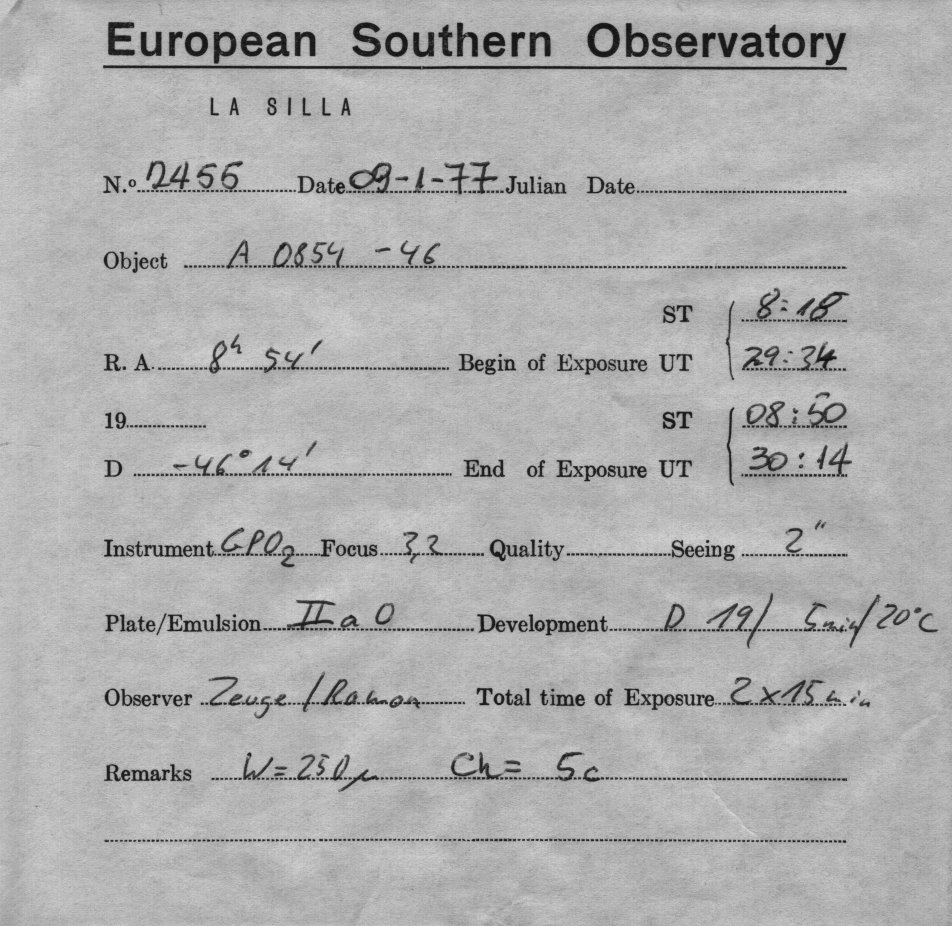 European Southern Observatory
LA SILLA
N.º 2456 Date 09-1-77 Julian Date
Object A 0854 -46
ST 8:18
R. A. 8h 54' Begin of Exposure UT 29:34
19 ST 08:50
D -46° 14' End of Exposure UT 30:14
Instrument GPO2 Focus 3,2 Quality Seeing 2"
Plate/Emulsion II a O Development D 19/ 5min/20°C
Observer Zeuge/Ramon Total time of Exposure 2x15min
Remarks W=250µ Ch= 5c